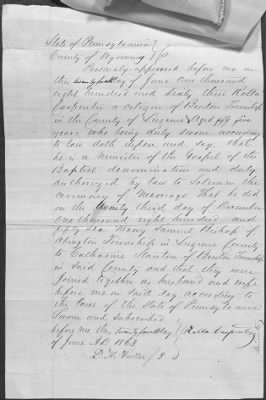 State of Pennsylvania }
County of Wyoming } SS
Personally appeared before me on
the twenty fourth day of June one thousand
eight hundred and sixty three Killa
Carpenter a citizen of Benton Township
in the County of Luzerne Aged fifty five
years, who being duly sworn according
to law doth depose and say, that
he is a Minister of the Gospel of the
Baptist denomination and duly
authorized by law to solemn the
ceremony of Marriage That he did
on the twenty third day of December
one thousand eight hundred and
fifty Marry Samuel Bishop of
Abington Township in Luzerne County
to Catharine Stanton of Benton Township
in Said County and that they were
Joined together as husband and wife
before me on Said day according to
the laws of the State of Pennsylvania
Sworn and subscribed
before me this twenty fourth day } Killa Carpenter
of June A.D. 1863